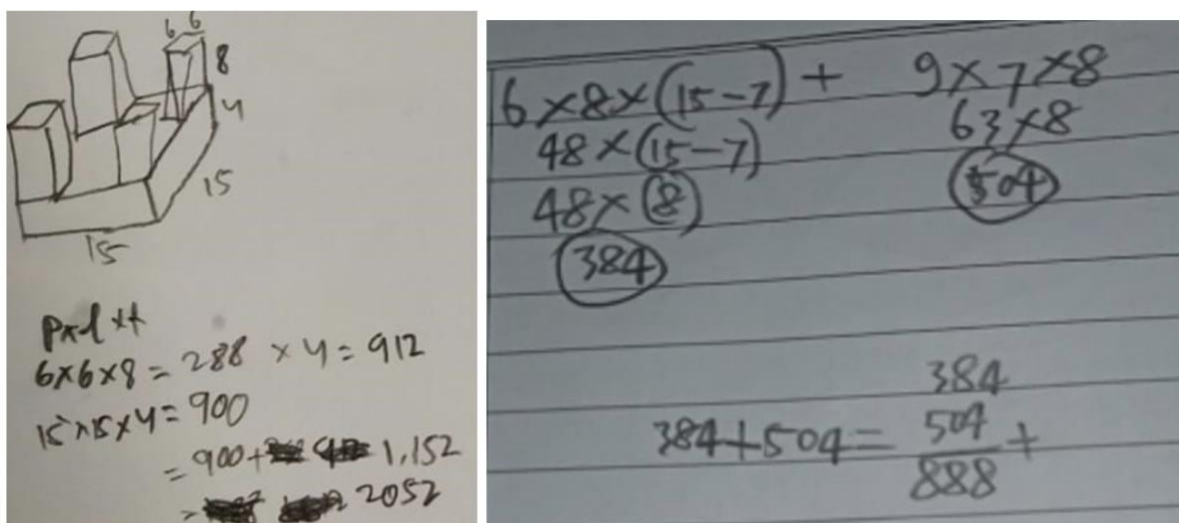 6 6
8
4
15
15
Pxlxt
6x6x8 = 288 x 4 = 912
15x15x4 = 900
= 900+ 1.152
= 2052
6x8x(15-7) + 9x7x8
48x(15-7) 63x8
48x(8) 504
384
384
384+504= 504 +
888